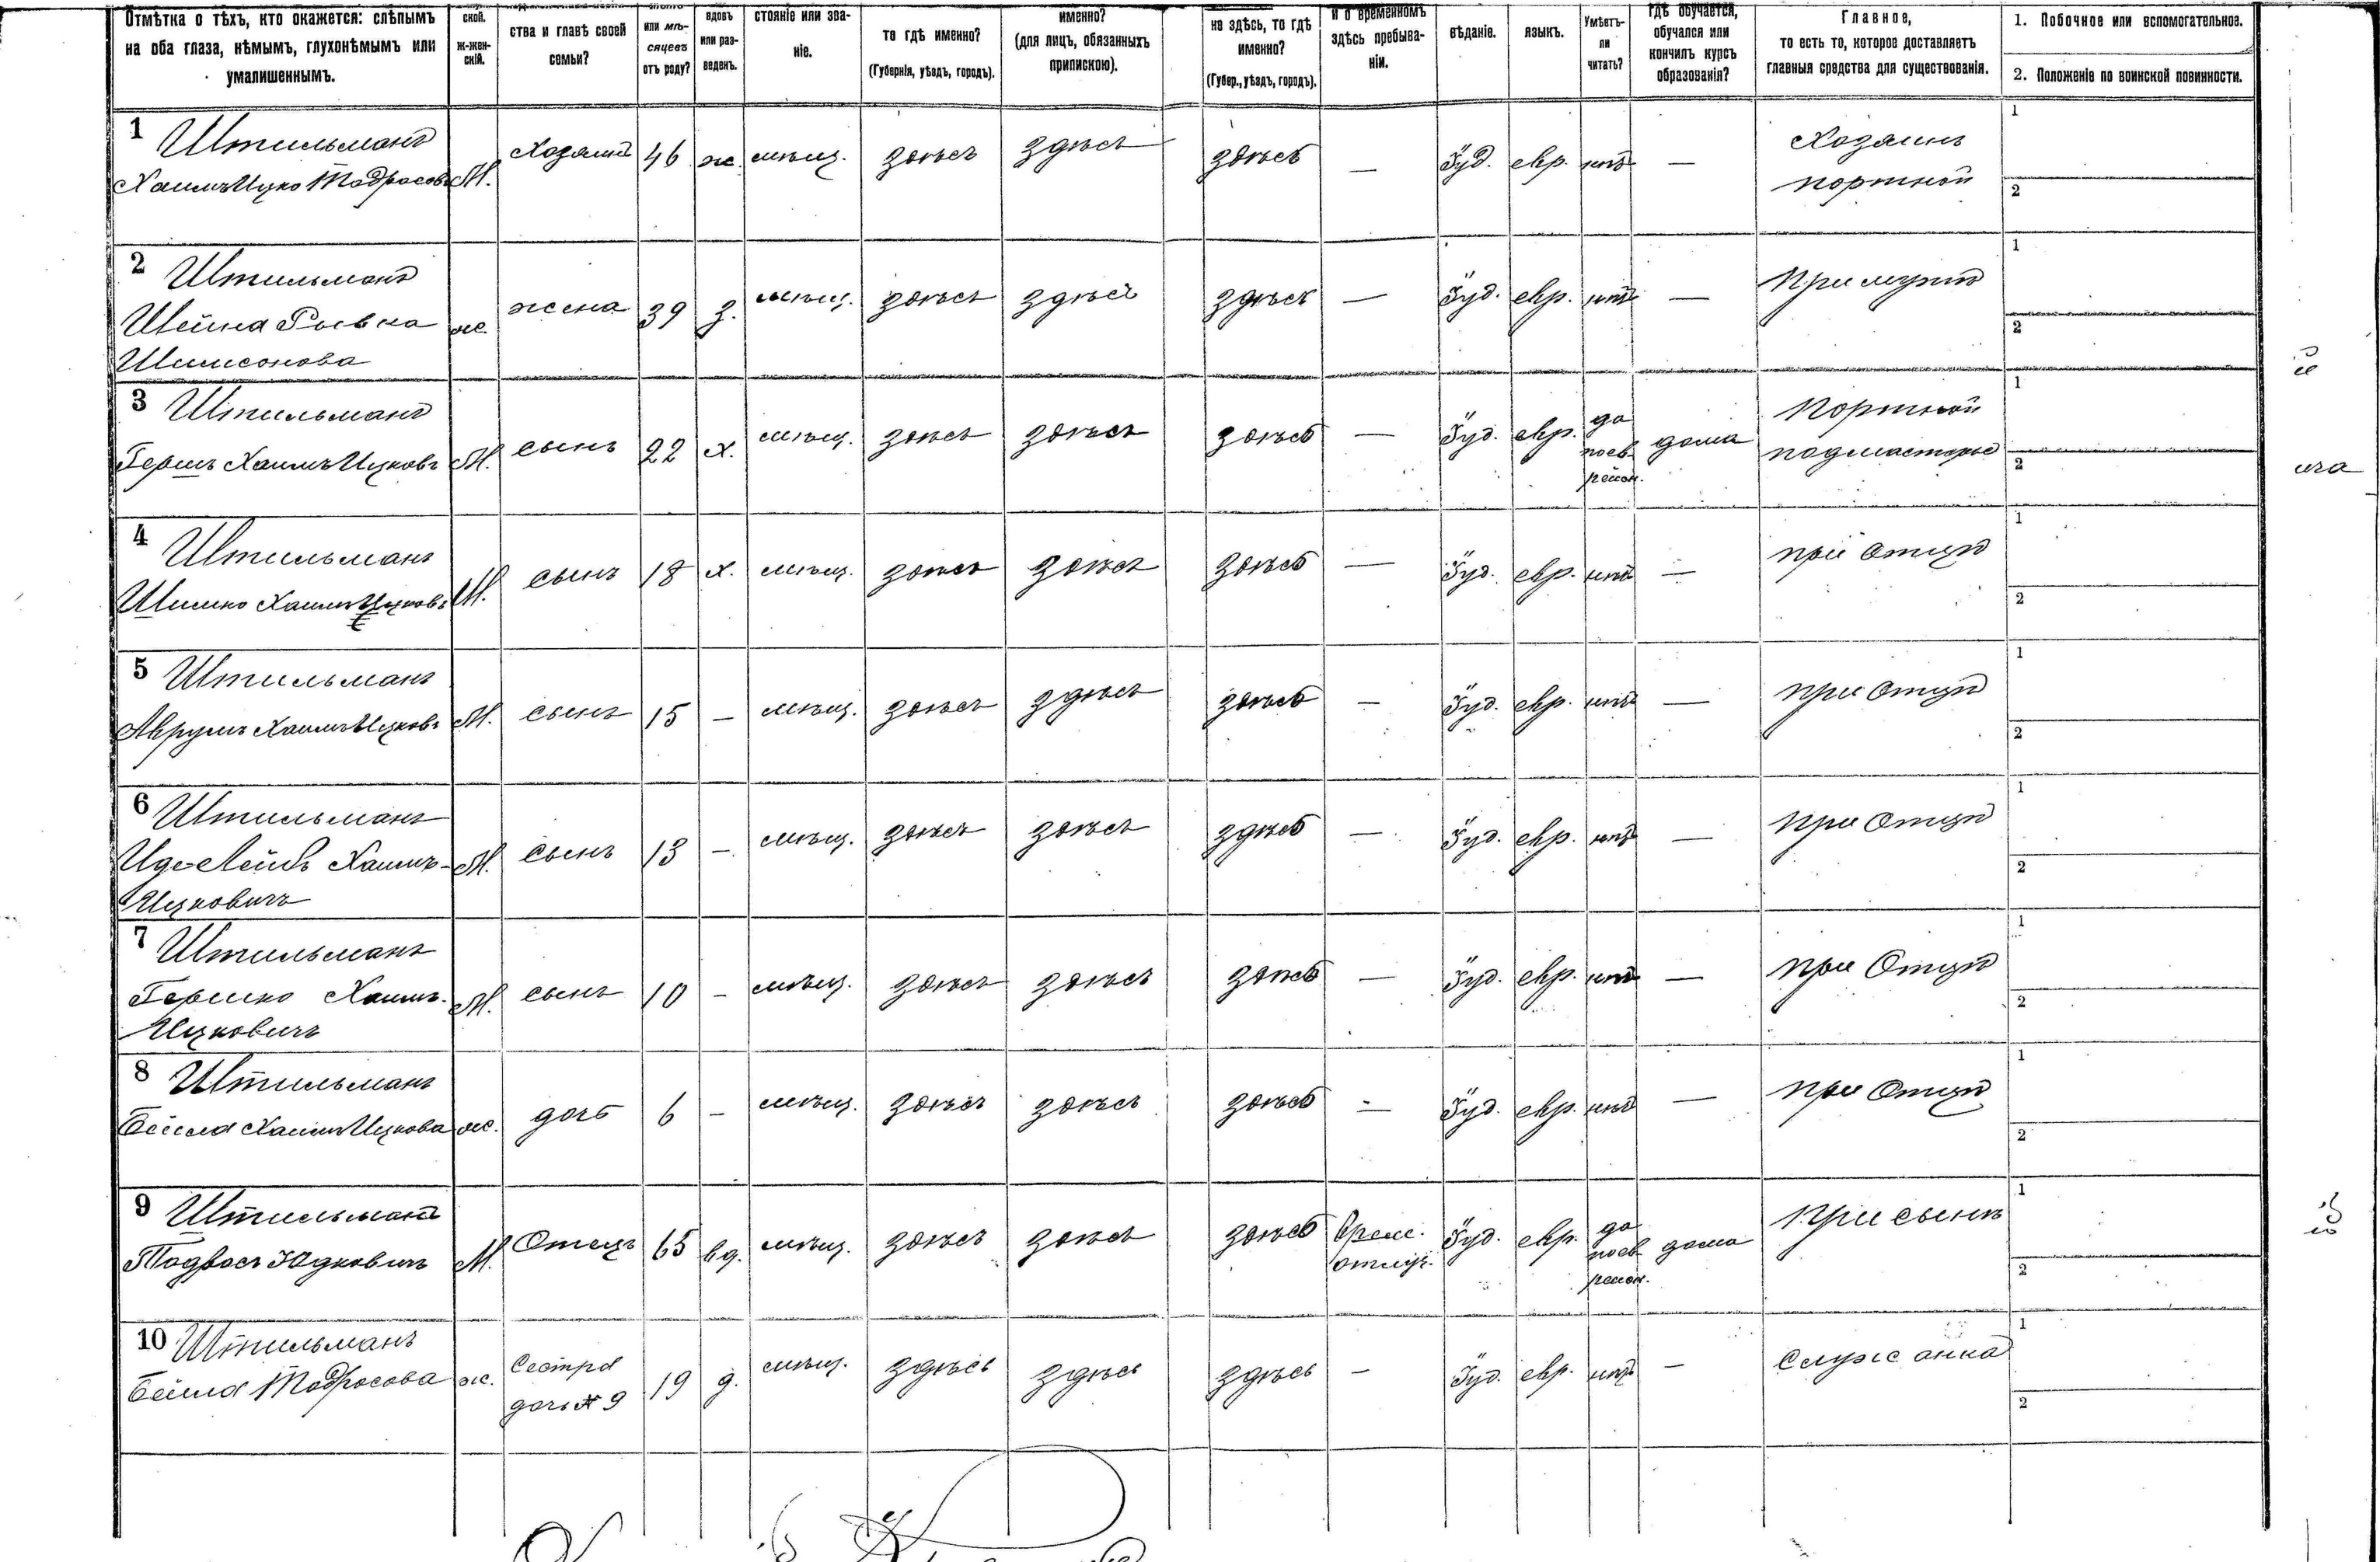 Отмѣтка о тѣхъ, кто окажется: слѣпымъ
на оба глаза, нѣмымъ, глухонѣмымъ или
умалишеннымъ.
ской.
ж-жен-
скій.
ства и главѣ своей
семьи?
или мѣ-
сяцевъ
отъ роду?
вдовъ
или раз-
веденъ.
стояніе или зва-
ніе.
то гдѣ именно?
(Губернія, уѣздъ, городъ).
именно?
(для лицъ, обязанныхъ
припискою).
не здѣсь, то гдѣ
именно?
(Губер., уѣздъ, городъ).
и о временномъ
здѣсь пребыва-
ніи.
вѣданіе.
языкъ.
Умѣетъ-
ли
читать?
гдѣ обучается,
обучался или
кончилъ курсъ
образованія?
Главное,
то есть то, которое доставляетъ
главныя средства для существованія.
1. Побочное или вспомогательное.
2. Положеніе по воинской повинности.
1 Штильманъ
Хаимъ Ицко Тодросовъ М. Хозяинъ 46 ж. мѣщ. здѣсь здѣсь здѣсь — Іуд. евр. нѣтъ — Хозяинъ
портной
1
2
2 Штильманъ
Шейна Ривка ж. жена 39 з. мѣщ. здѣсь здѣсь здѣсь — Іуд. евр. нѣтъ — При мужѣ
Шимсонова
1
2
3 Штильманъ
Гершъ Хаимъ Ицковъ М. сынъ 22 х. мѣщ. здѣсь здѣсь здѣсь — Іуд. евр. да
поев
рейск. дома Портной
подмастерье
1
2
4 Штильманъ
Шимко Хаимъ Ицковъ М. сынъ 18 х. мѣщ. здѣсь здѣсь здѣсь — Іуд. евр. нѣтъ — при Отцѣ
1
2
5 Штильманъ
Аврумъ Хаимъ Ицковъ М. сынъ 15 — мѣщ. здѣсь здѣсь здѣсь — Іуд. евр. нѣтъ — при Отцѣ
1
2
6 Штильманъ
Иде-Лейбъ Хаимъ- М. сынъ 13 — мѣщ. здѣсь здѣсь здѣсь — Іуд. евр. нѣтъ — при Отцѣ
Ицковичъ
1
2
7 Штильманъ
Гершко Хаимъ- М. сынъ 10 — мѣщ. здѣсь здѣсь здѣсь — Іуд. евр. нѣтъ — при Отцѣ
Ицковичъ
1
2
8 Штильманъ
Бейла Хаимъ Ицкова ж. дочь 6 — мѣщ. здѣсь здѣсь здѣсь — Іуд. евр. нѣтъ — при Отцѣ
1
2
9 Штильманъ
Тодросъ Юдковичъ М. Отецъ 65 вд. мѣщ. здѣсь здѣсь здѣсь Врем.
отлуч. Іуд. евр. да
поев
рейск. дома При сынѣ
1
2
10 Штильманъ
Бейла Тодросова ж. Сестра
дочь № 9 19 д. мѣщ. здѣсь здѣсь здѣсь — Іуд. евр. нѣтъ — Служанка
1
2